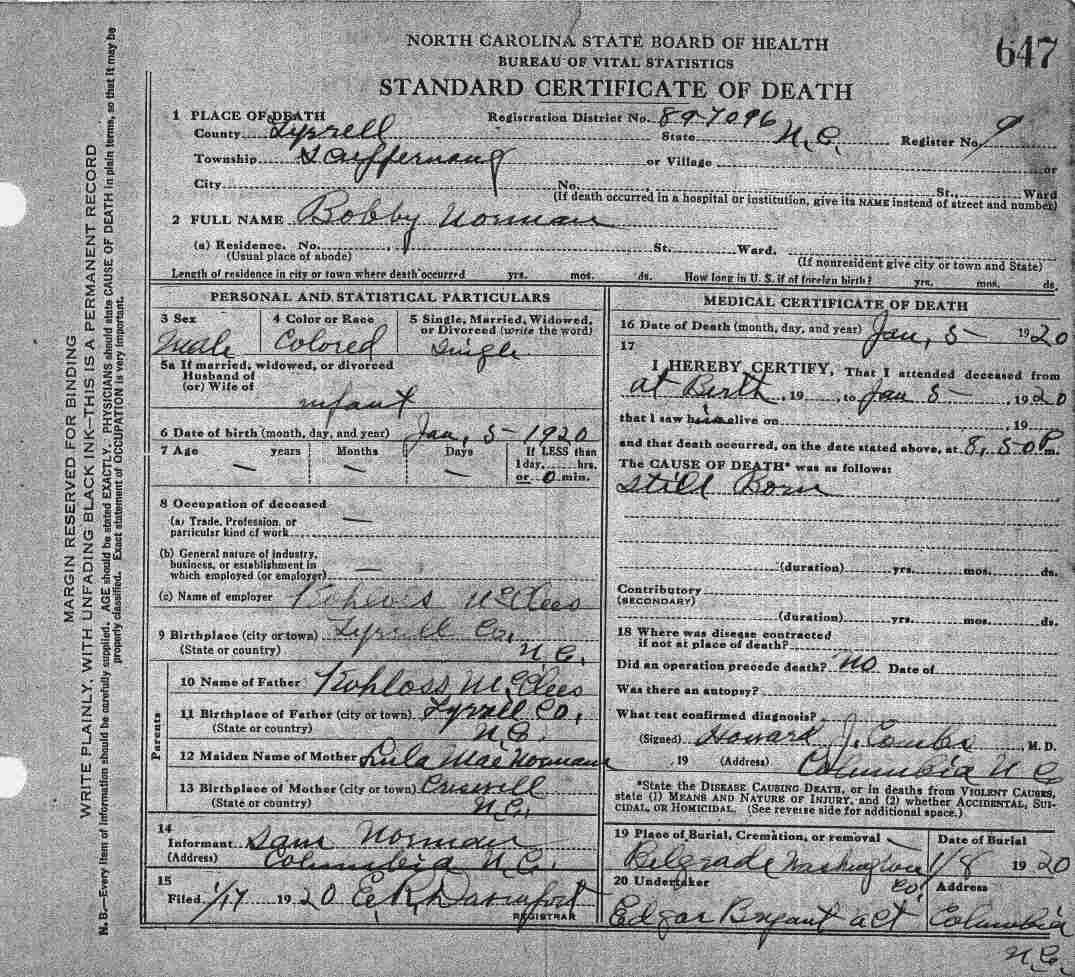 647
NORTH CAROLINA STATE BOARD OF HEALTH
BUREAU OF VITAL STATISTICS
STANDARD CERTIFICATE OF DEATH
1 PLACE OF DEATH Registration District No. 89-7096 Register No. 9
County Tyrrell State N.C.
Township Scuppernong or Village or
City No. St., Ward
(If death occurred in a hospital or institution, give its NAME instead of street and number)
2 FULL NAME Bobby Norman
(a) Residence. No. St. Ward.
(Usual place of abode) (If nonresident give city or town and State)
Length of residence in city or town where death occurred yrs. mos. ds. How long in U. S. if of foreign birth? yrs. mos. ds.
PERSONAL AND STATISTICAL PARTICULARS
3 Sex Male
4 Color or Race Colored
5 Single, Married, Widowed, or Divorced (write the word) Single
5a If married, widowed, or divorced
Husband of
(or) Wife of
infant
6 Date of birth (month, day, and year) Jan, 5- 1920
7 Age years Months Days If LESS than
— — — 1 day, hrs.
or 0 min.
8 Occupation of deceased
(a) Trade, Profession, or
particular kind of work —
(b) General nature of industry,
business, or establishment in
which employed (or employer) —
(c) Name of employer Kohloss McClees
9 Birthplace (city or town) Tyrrell Co.
(State or country) N.C.
Parents
10 Name of Father Kohloss McClees
11 Birthplace of Father (city or town) Tyrrell Co,
(State or country) N.C.
12 Maiden Name of Mother Lula Mae Norman
13 Birthplace of Mother (city or town) Creswell
(State or country) N.C.
14
Informant Sam Norman
(Address) Columbia N.C.
15
Filed 1/17 1920 E.R. Davenport
REGISTRAR
MEDICAL CERTIFICATE OF DEATH
16 Date of Death (month, day, and year) Jan, 5- 1920
17
I HEREBY CERTIFY, That I attended deceased from
at Birth, 19 , to Jan 5-, 1920
that I saw him alive on , 19
and that death occurred, on the date stated above, at 8,50P m.
The CAUSE OF DEATH* was as follows:
Still Born
(duration) yrs. mos. ds.
Contributory
(SECONDARY)
(duration) yrs. mos. ds.
18 Where was disease contracted
if not at place of death?
Did an operation precede death? No Date of
Was there an autopsy?
What test confirmed diagnosis?
(Signed) Howard J. Combs, M. D.
, 19 (Address) Columbia N C
*State the DISEASE CAUSING DEATH, or in deaths from VIOLENT CAUSES,
state (1) MEANS AND NATURE OF INJURY, and (2) whether ACCIDENTAL, SUI-
CIDAL, OR HOMICIDAL. (See reverse side for additional space.)
19 Place of Burial, Cremation, or removal Date of Burial
Belgrade Washington Co. 1/8 1920
20 Undertaker Address
Edgar Bryant act Columbia
N.C.
MARGIN RESERVED FOR BINDING
WRITE PLAINLY, WITH UNFADING BLACK INK—THIS IS A PERMANENT RECORD
N. B.—Every item of information should be carefully supplied. AGE should be stated EXACTLY. PHYSICIANS should state CAUSE OF DEATH in plain terms, so that it may be
properly classified. Exact statement of OCCUPATION is very important.